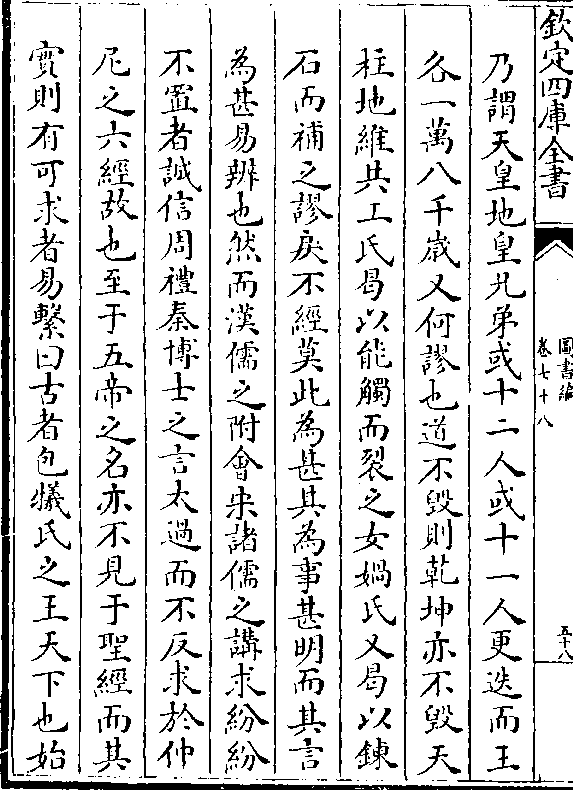 欽定四庫全書
圖書編
卷七十八
五十八
乃謂天皇地皇兄弟或十二人或十一人更迭而王
各一萬八千歲又何謬也道不毀則乾坤亦不毀天
柱地維共工氏曷以能觸而裂之女媧氏又曷以鍊
石而補之謬戾不經莫此為甚其為事甚明而其言
為甚易辨也然而漢儒之附會宋諸儒之講求紛紛
不置者誠信周禮秦博士之言太過而不反求於仲
尼之六經故也至于五帝之名亦不見于聖經而其
實則有可求者易繫曰古者包犧氏之王天下也始